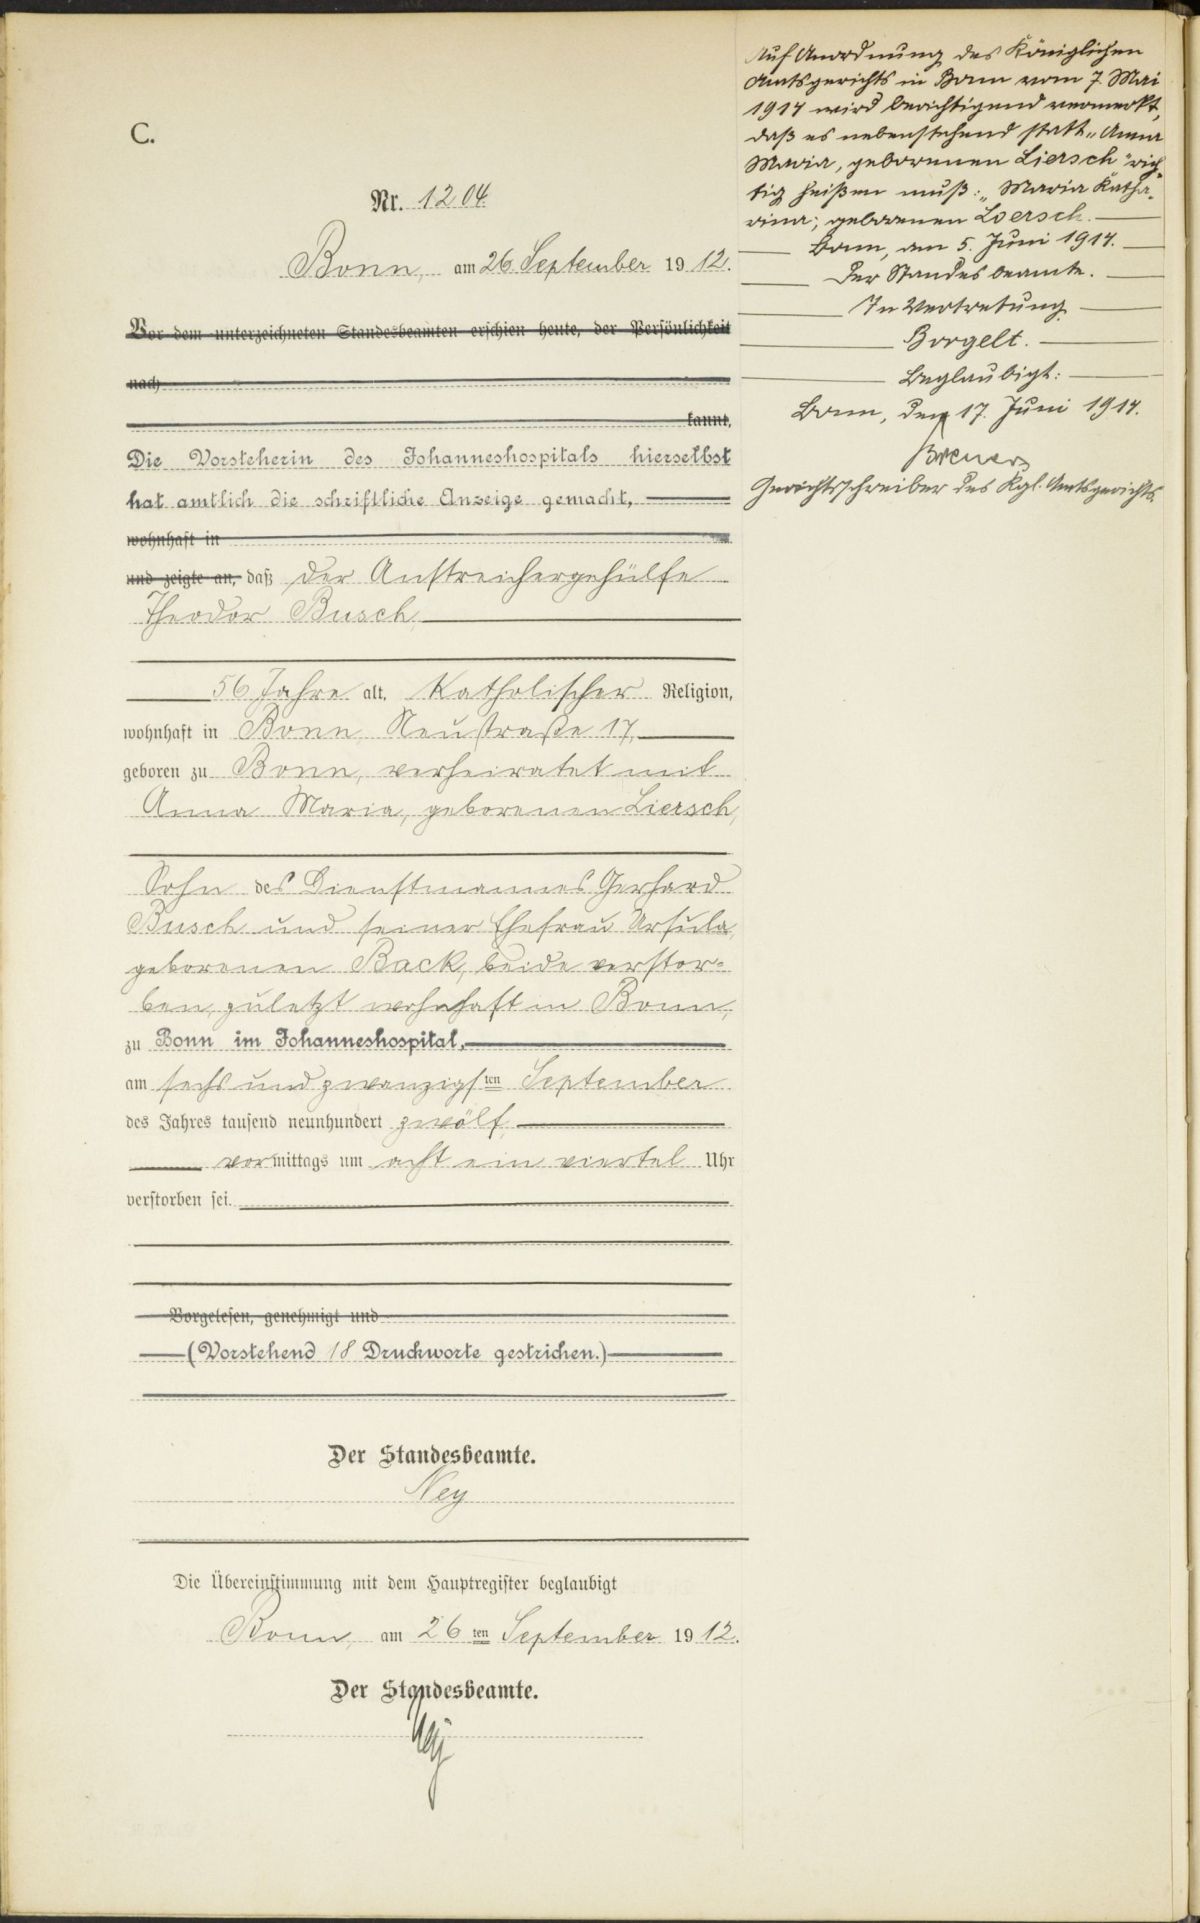 C.
Nr. 1204
Bonn, am 26. September 1912.
Vor dem unterzeichneten Standesbeamten erschien heute, der Persönlichkeit
nach
kannt,
Die Vorsteherin des Johanneshospitals hierselbst
hat amtlich die schriftliche Anzeige gemacht,
wohnhaft in
und zeigte an, daß der Anstreichergehülfe
Theodor Busch,
56 Jahre alt, Katholischer Religion,
wohnhaft in Bonn, Neustraße 17,
geboren zu Bonn, verheiratet mit
Anna Maria, geborenen Liersch,
Sohn des Dienstmannes Gerhard
Busch und seiner Ehefrau Ursula,
geborenen Back, beide verstor-
ben, zuletzt wohnhaft in Bonn,
zu Bonn im Johanneshospital,
am sechs und zwanzigsten September
des Jahres tausend neunhundert zwölf
vormittags um acht ein viertel Uhr
verstorben sei.
Vorgelesen, genehmigt und
(Vorstehend 18 Druckworte gestrichen.)
Der Standesbeamte.
Ney
Die Übereinstimmung mit dem Hauptregister beglaubigt
Bonn, am 26ten September 1912.
Der Standesbeamte.
Ney
Auf Anordnung des Königlichen
Amtsgerichts in Bonn vom 7. Mai
1914 wird berichtigend vermerkt,
daß es nebenstehend statt „Anna
Maria, geborenen Liersch" rich-
tig heißen muß: „Maria Katha-
rina, geborenen Loersch.
Bonn, am 5. Juni 1914.
Der Standesbeamte.
In Vertretung
Borgelt.
Beglaubigt:
Bonn, den 17. Juni 1914.
Gerichtsschreiber des Kgl. Amtsgerichts.